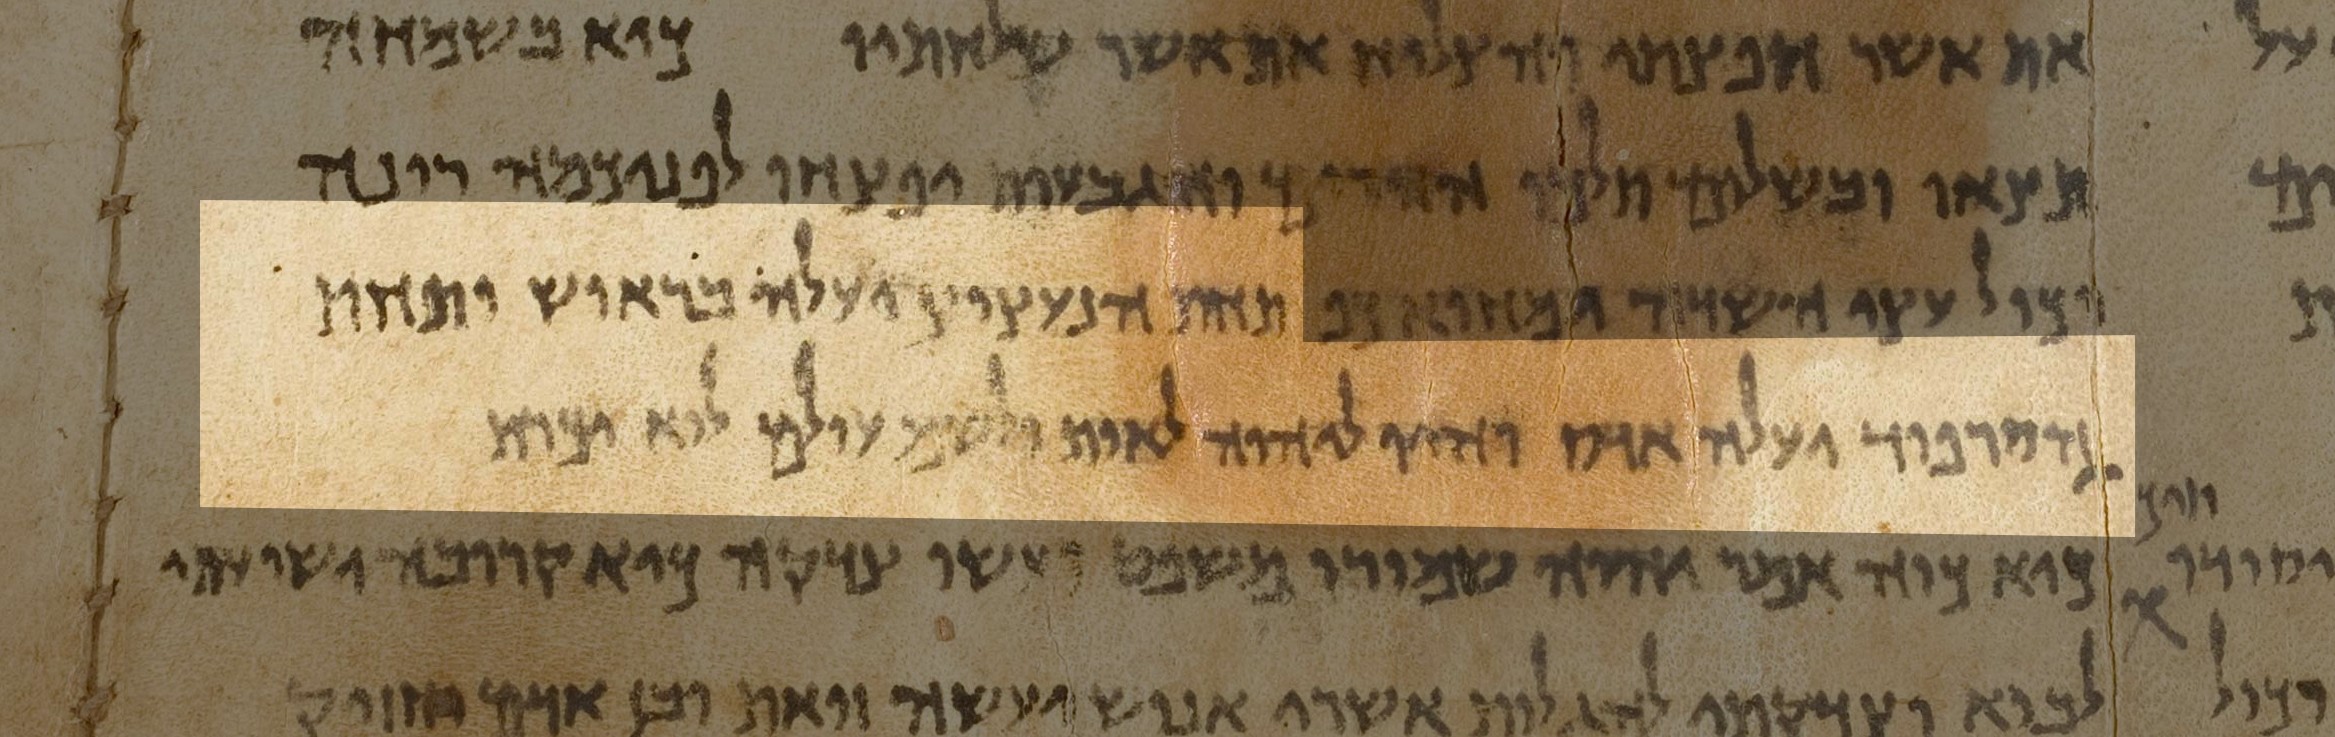 את אשר חפצתי והצליח את אשר שלחתיו כיא בשמחה
תצאו ובשלום תלכו ההרים והגבעות יפצחו לפניכמה רינה
וכול עצי השדה ימחוא כף תחת הנעצוץ יעלה בראוש ותחת
הסרפוד יעלה אדס והיו ליהוה לאות ולשם עולם לוא יכרת
כיא כוה אמר יהוה שמורו משפט ועשו צדקה כיא קרובה ישועתי
לבוא וצדקתי להגלות אשרי אנוש יעשה זואת ובן אדם יחזיק